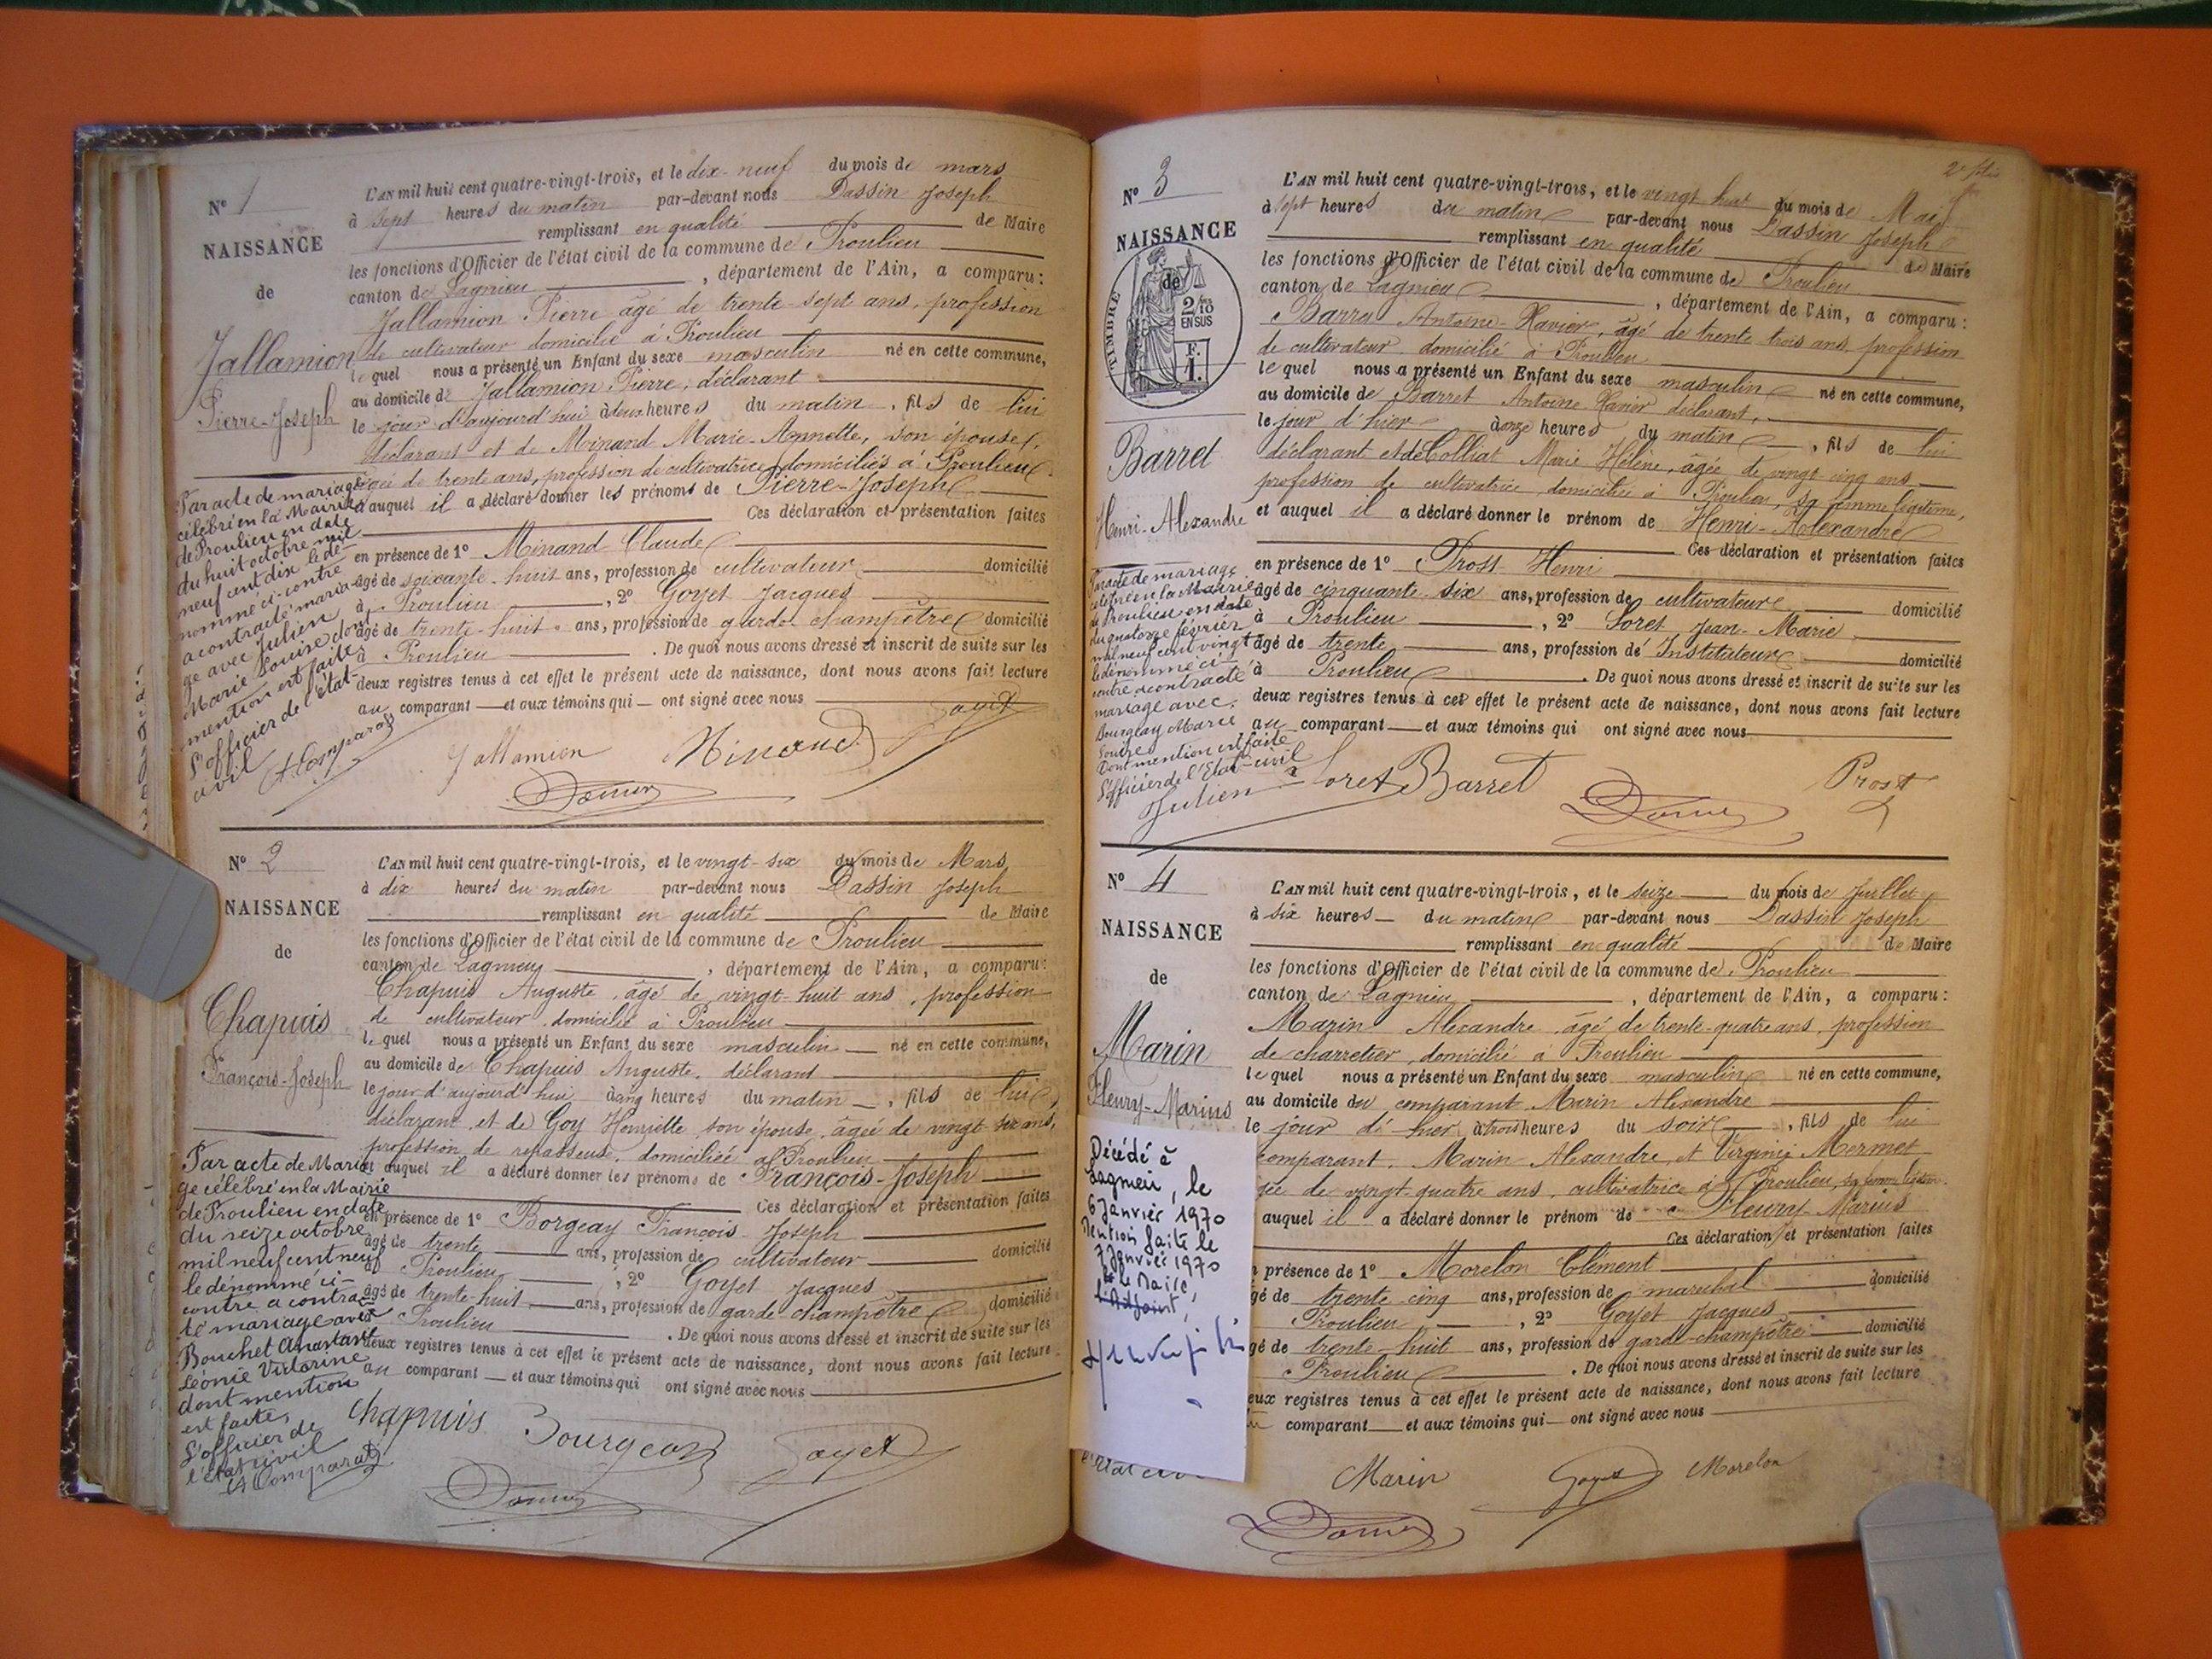 N° 1
NAISSANCE
de
Jallamion
Pierre-Joseph
L'AN mil huit cent quatre-vingt-trois, et le dix-neuf du mois de mars
à sept heures du matin par-devant nous Dassin Joseph
remplissant en qualité de Maire
les fonctions d'Officier de l'état civil de la commune de Proulieu
canton de Lagnieu, département de l'Ain, a comparu:
Jallamion Pierre âgé de trente-sept ans, profession
de cultivateur domicilié à Proulieu
lequel nous a présenté un Enfant du sexe masculin né en cette commune,
au domicile de Jallamion Pierre, déclarant
le jour d'aujourd'hui à deux heures du matin, fils de lui
déclarant et de Minand Marie-Annette, son épouse,
âgée de trente ans, profession de cultivatrice domiciliés à Proulieu
et auquel il a déclaré donner les prénoms de Pierre-Joseph
Ces déclaration et présentation faites
en présence de 1° Minand Claude
âgé de soixante-huit ans, profession de cultivateur domicilié
à Proulieu, 2° Goyet Jacques
âgé de trente-huit ans, profession de garde champêtre domicilié
à Proulieu. De quoi nous avons dressé et inscrit de suite sur les
deux registres tenus à cet effet le présent acte de naissance, dont nous avons fait lecture
au comparant et aux témoins qui ont signé avec nous
Par acte de mariage
célébré en la Mairie
de Proulieu en date
du huit octobre mil
neuf cent dix le dé-
nommé ci-contre
a contracté maria-
ge avec Julien
Marie Louise dont
mention est faite
L'officier de l'état-
civil
A Comparat
Jallamion Minand Goyet
N° 2
NAISSANCE
de
Chapuis
François-Joseph
L'AN mil huit cent quatre-vingt-trois, et le vingt-six du mois de Mars
à dix heures du matin par-devant nous Dassin Joseph
remplissant en qualité de Maire
les fonctions d'Officier de l'état civil de la commune de Proulieu
canton de Lagnieu, département de l'Ain, a comparu:
Chapuis Auguste, âgé de vingt-huit ans, profession
de cultivateur domicilié à Proulieu
lequel nous a présenté un Enfant du sexe masculin né en cette commune,
au domicile de Chapuis Auguste, déclarant
le jour d'aujourd'hui à cinq heures du matin, fils de lui
déclarant et de Goy Henriette son épouse, âgée de vingt-six ans,
profession de repasseuse, domiciliée à Proulieu
et auquel il a déclaré donner les prénoms de François-Joseph
Ces déclaration et présentation faites
en présence de 1° Borgeay François-Joseph
âgé de trente ans, profession de cultivateur domicilié
à Proulieu, 2° Goyet Jacques
âgé de trente-huit ans, profession de garde-champêtre domicilié
à Proulieu. De quoi nous avons dressé et inscrit de suite sur les
deux registres tenus à cet effet le présent acte de naissance, dont nous avons fait lecture
au comparant et aux témoins qui ont signé avec nous
Par acte de Maria
ge célébré en la Mairie
de Proulieu en date
du seize octobre
mil neuf cent neuf
le dénommé ci-
contre a contrac
té mariage avec
Bouchet
Léonie Victorine
dont mention
est faite,
L'officier de
l'état civil
A Comparat
Chapuis Bourgeay Goyet
2e folio
N° 3
NAISSANCE
de
TIMBRE
2/10
EN SUS
F.
1.
Barret
Henri-Alexandre
L'AN mil huit cent quatre-vingt-trois, et le vingt huit du mois de Mai
à sept heures du matin par-devant nous Dassin Joseph
remplissant en qualité de Maire
les fonctions d'Officier de l'état civil de la commune de Proulieu
canton de Lagnieu, département de l'Ain, a comparu:
Barret Antoine-Xavier, âgé de trente trois ans, profession
de cultivateur domicilié à Proulieu
lequel nous a présenté un Enfant du sexe masculin né en cette commune,
au domicile de Barret Antoine Xavier déclarant,
le jour d'hier à onze heures du matin, fils de lui
déclarant et de Colliat Marie Hélène, âgée de vingt cinq ans
profession de cultivatrice domiciliée à Proulieu, sa femme légitime,
et auquel il a déclaré donner le prénom de Henri-Alexandre
Ces déclaration et présentation faites
en présence de 1° Prost Henri
âgé de cinquante-six ans, profession de cultivateur domicilié
à Proulieu, 2° Loret Jean-Marie
âgé de trente ans, profession de Instituteur domicilié
à Proulieu. De quoi nous avons dressé et inscrit de suite sur les
deux registres tenus à cet effet le présent acte de naissance, dont nous avons fait lecture
au comparant et aux témoins qui ont signé avec nous
Par acte de mariage
célébré en la Mairie
de Proulieu en date
du quatorze février
mil neuf cent vingt
le dénommé ci-
contre a contracté
mariage avec
Bourgeay Marie
Louise
Dont mention est faite
L'officier de l'Etat-civil
Julien
Loret Barret Prost
N° 4
NAISSANCE
de
Marin
Fleury-Marius
L'AN mil huit cent quatre-vingt-trois, et le seize du mois de Juillet
à six heures du matin par-devant nous Dassin Joseph
remplissant en qualité de Maire
les fonctions d'Officier de l'état civil de la commune de Proulieu
canton de Lagnieu, département de l'Ain, a comparu:
Marin Alexandre, âgé de trente-quatre ans, profession
de charretier, domicilié à Proulieu
lequel nous a présenté un Enfant du sexe masculin né en cette commune,
au domicile du comparant Marin Alexandre
le jour d'hier à trois heures du soir, fils de lui
comparant, Marin Alexandre, et Virginie Mermet
gée de vingt-quatre ans, cultivatrice à Proulieu, sa femme légitime.
auquel il a déclaré donner le prénom de Fleury Marius
Ces déclaration et présentation faites
présence de 1° Morelon Clément
gé de trente cinq ans, profession de maréchal domicilié
Proulieu, 2° Goyet Jacques
gé de trente-huit ans, profession de garde-champêtre domicilié
Proulieu. De quoi nous avons dressé et inscrit de suite sur les
eux registres tenus à cet effet le présent acte de naissance, dont nous avons fait lecture
comparant et aux témoins qui ont signé avec nous
Décédé à
Lagnieu, le
6 Janvier 1970
Mention faite le
7 Janvier 1970
le Maire,
l'Adjoint,
Marin Goyet Morelon